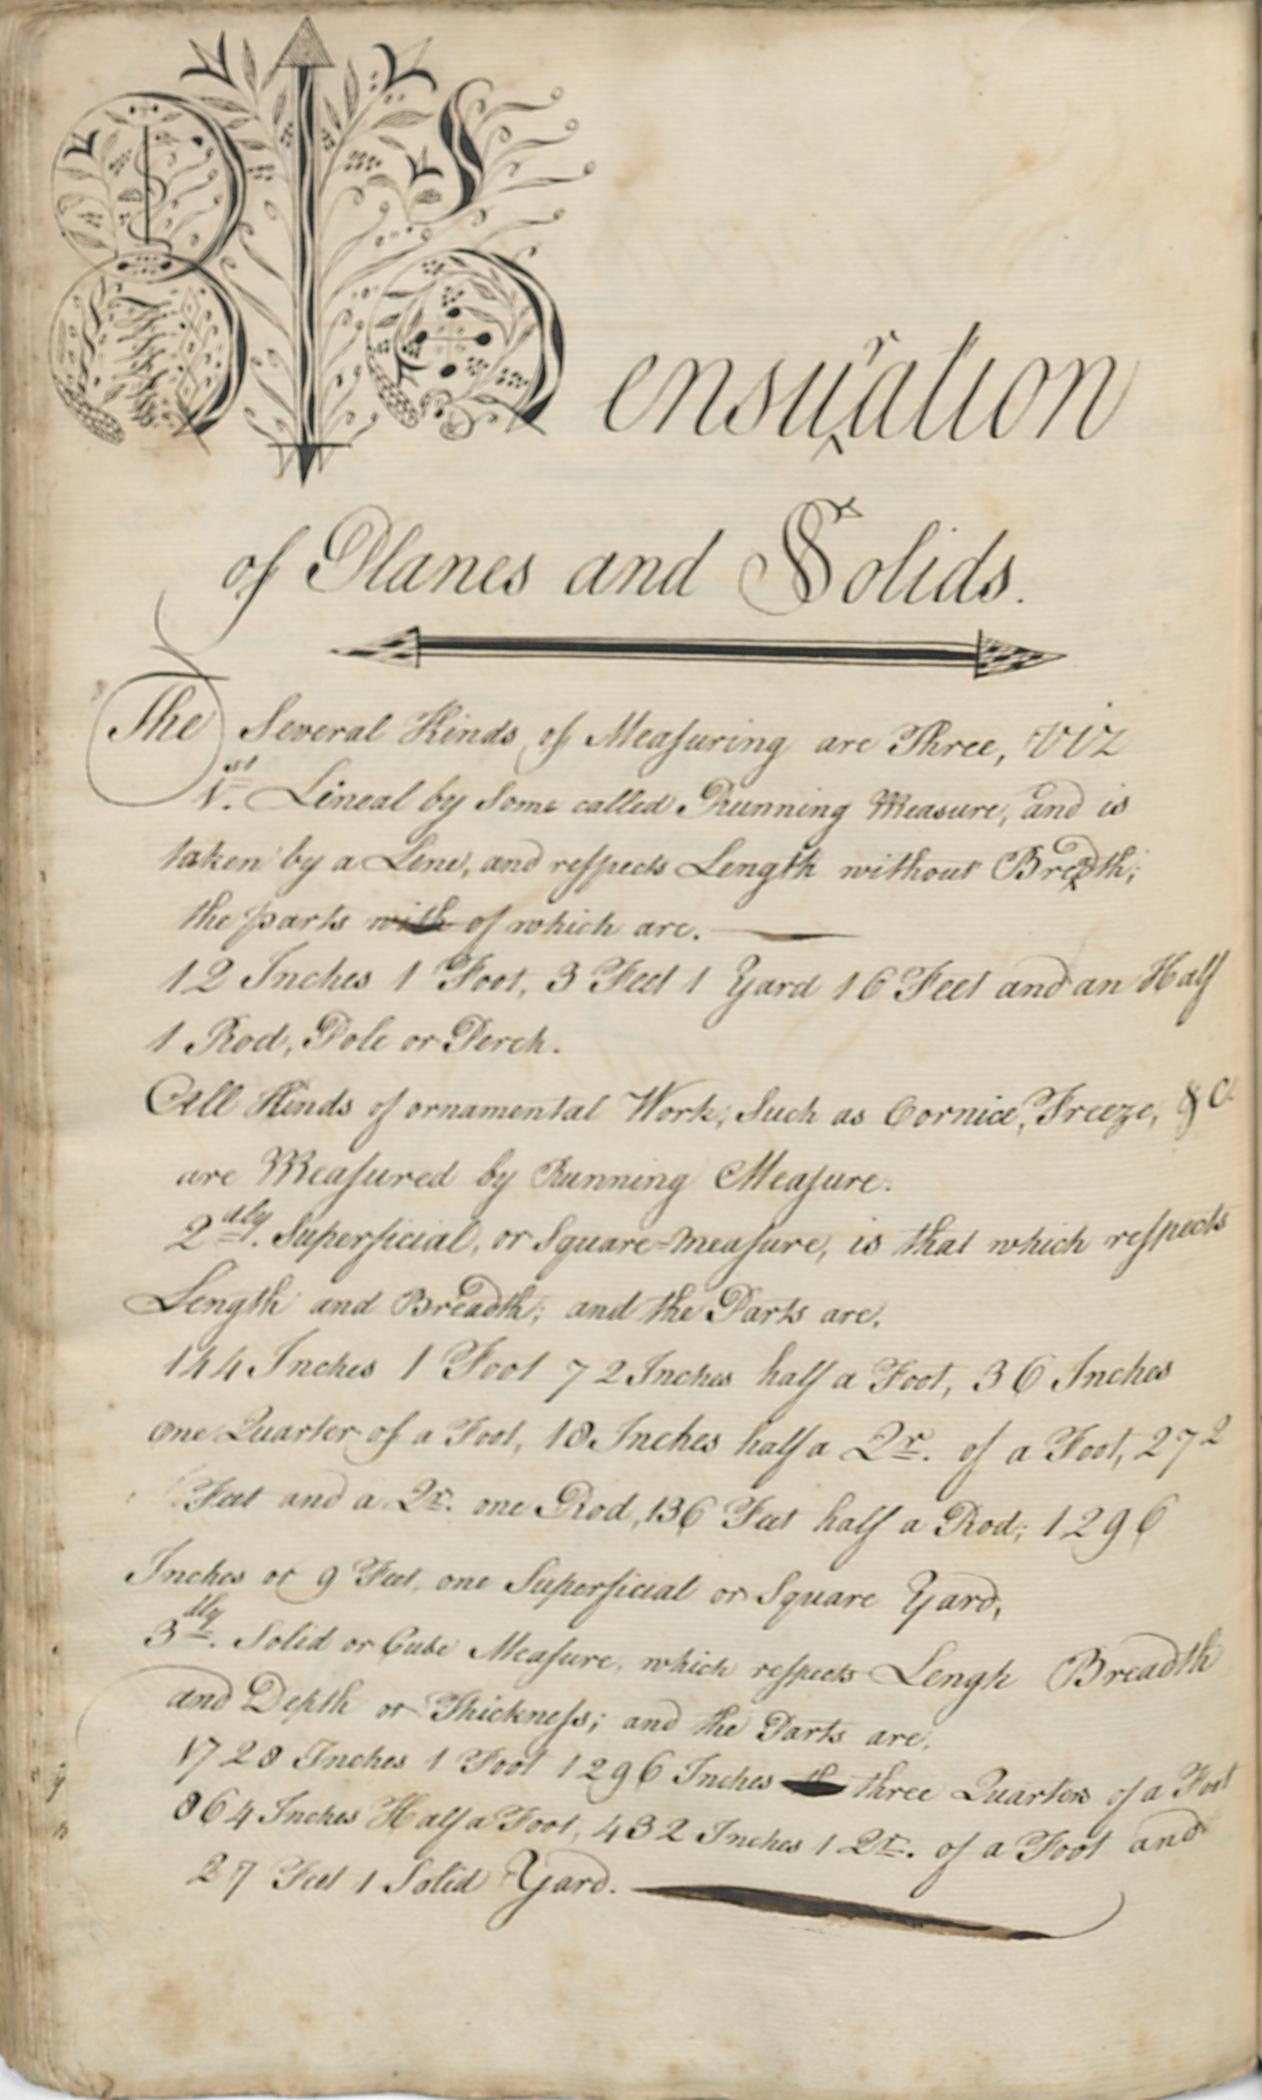 Mensuration
of Planes and Solids.
The Several Kinds of Meaſuring are Three, VIZ
1st. Lineal by Some called Running Measure, and is
taken by a Line, and reſpects Length without Breadth;
the parts with of which are.
12 Inches 1 Foot, 3 Feet 1 Yard 16 Feet and an Half
1 Rod, Pole or Perch.
All Kinds of ornamental Work, Such as Cornice, Freeze, &c
are Meaſured by Running Meaſure.
2dly. Superficial, or Square-meaſure, is that which reſpects
Length and Breadth; and the Parts are.
144 Inches 1 Foot 72 Inches half a Foot, 36 Inches
one Quarter of a Foot, 18 Inches half a Qr. of a Foot, 272
Feet and a Qr. one Rod, 136 Feet half a Rod; 1296
Inches or 9 Feet, one Superficial or Square Yard,
3dly. Solid or Cube Meaſure, which reſpects Lengh Breadth
and Depth or Thickneſs; and the Parts are.
1728 Inches 1 Foot 1296 Inches three Quarters of a Foot
864 Inches Half a Foot, 432 Inches 1 Qr. of a Foot and
27 Feet 1 Solid Yard.